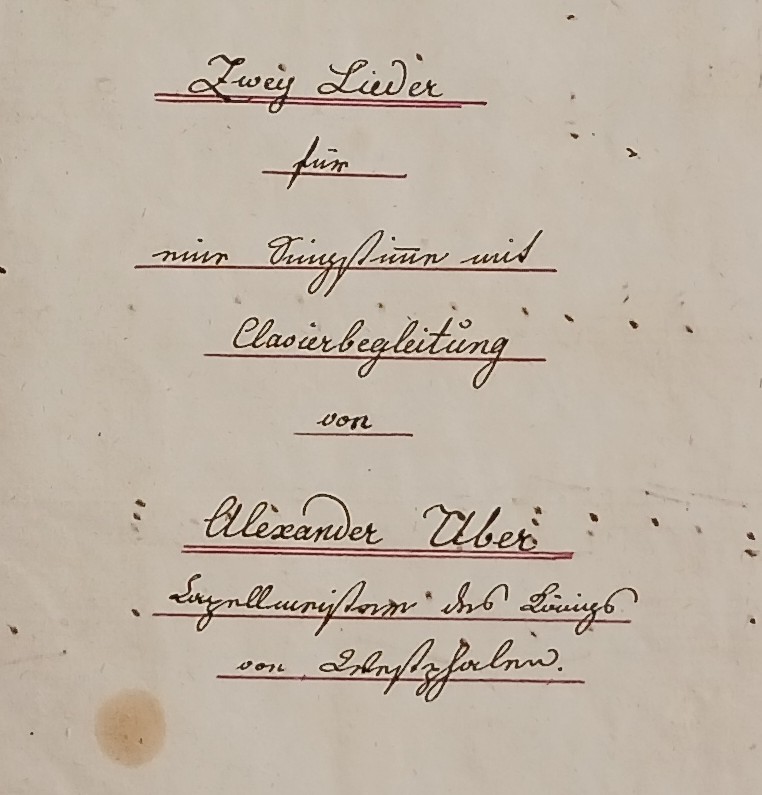 Zwey Lieder
für
eine Singstim̅e mit
Clavierbegleitung
von
Alexander Uber
Capellmeister des Königs
von Westphalen.